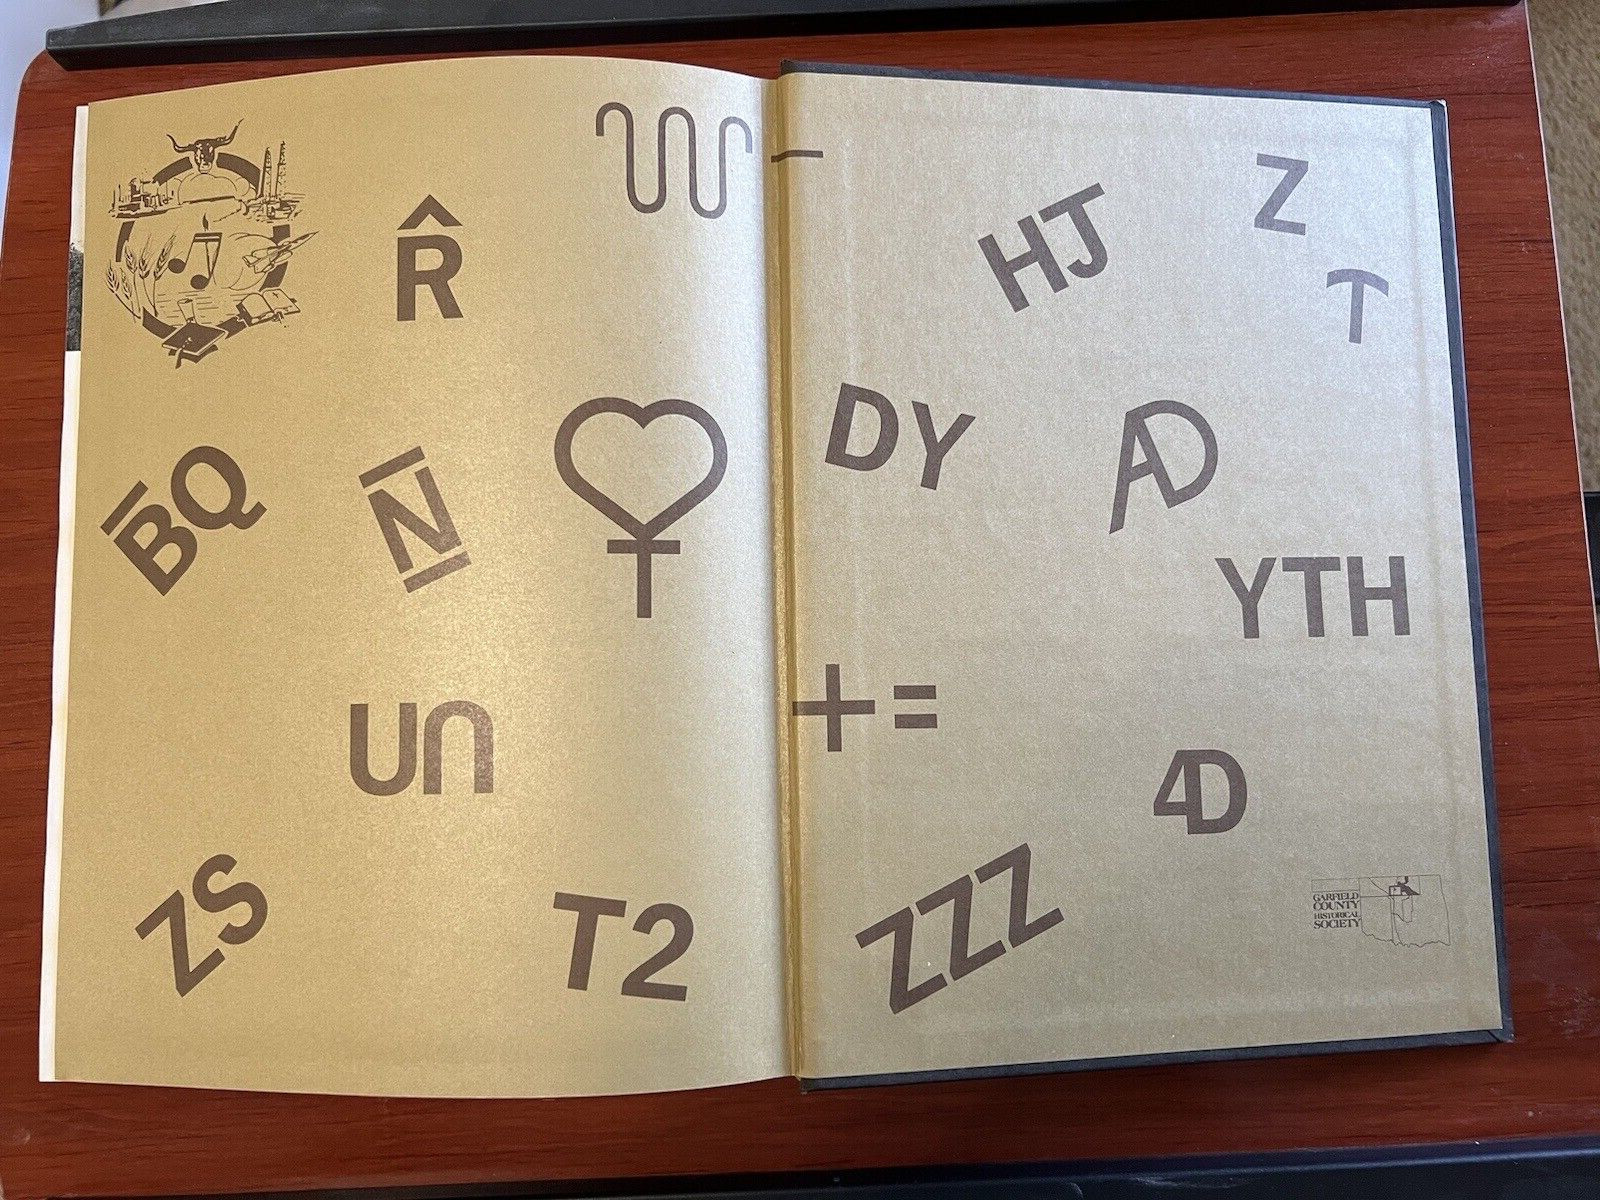 R
HJ
Z
T
BQ
N
DY
AD
YTH
UN
+=
4D
ZS
T2
ZZZ
GARFIELD
COUNTY
HISTORICAL
SOCIETY